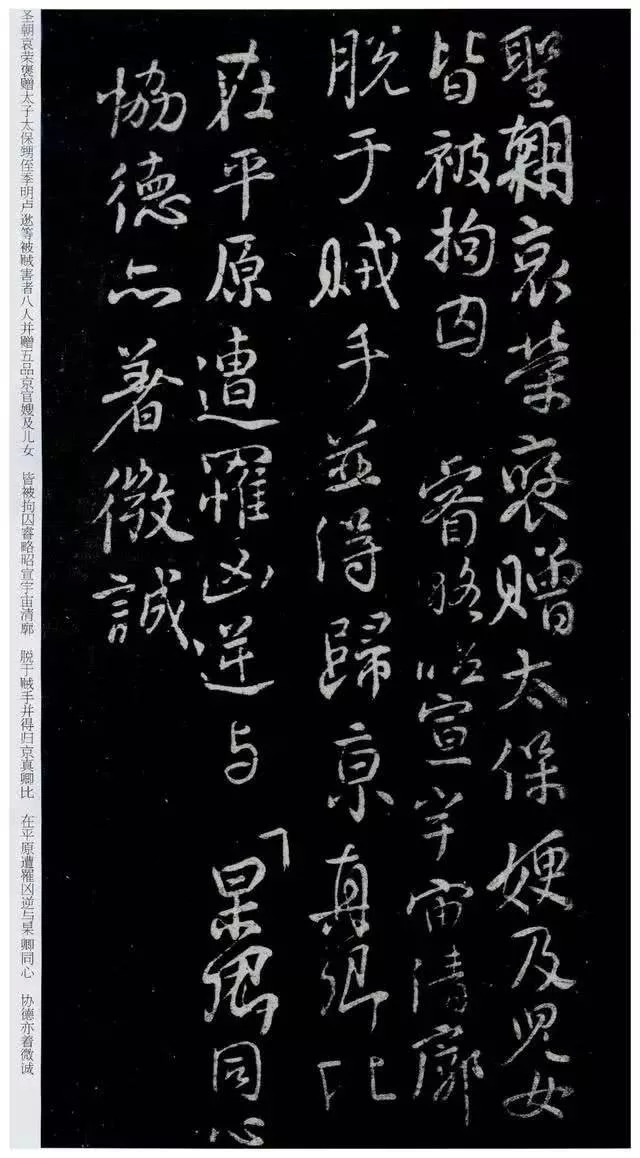 聖朝哀荣褒贈太保嫂及児女
皆被拘囚 睿略昭宣宇宙清廓
脫于賊手並得歸京真卿比
在平原遭罹凶逆与 杲卿同心
協德亦著微誠
圣朝哀荣褒赠太子太保甥侄季明卢逖等被贼害者八人并赠五品京官嫂及儿女 皆被拘囚睿略昭宣宇宙清廓 脱于贼手并得归京真卿比 在平原遭罹凶逆与杲卿同心 协德亦着微诚